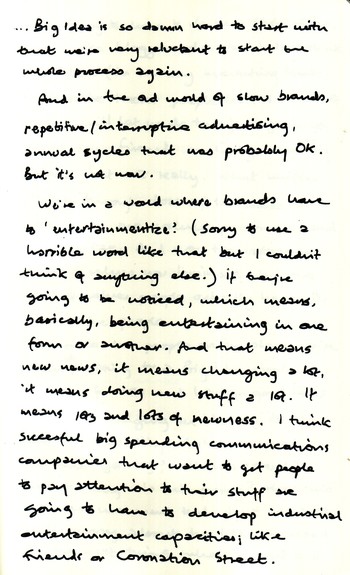 ... Big Idea is so damn hard to start with
that we're very reluctant to start the
whole process again.
And in the ad world of slow brands,
repetitive/interruptive advertising,
annual sycles that was probably OK.
But it's not now.
We're in a world where brands have
to 'entertainmentize' (sorry to use a
horrible word like that but I couldn't
think of anything else.) if they're
going to be noticed, which means,
basically, being entertaining in one
form or another. And that means
new news, it means changing a lot,
it means doing new stuff a lot. It
means lots and lots of newness. I think
succesful big spending communications
companies that want to get people
to pay attention to their stuff are
going to have to develop industrial
entertainment capacities; like
Friends or Coronation Street.